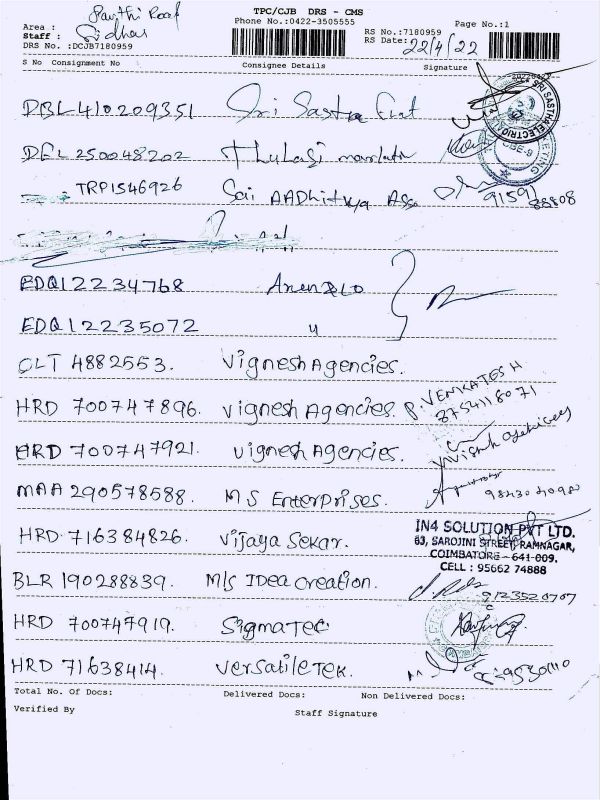 TPC/CJB DRS - CMS
Phone No.:0422-3505555
Page No.:1
Area : Road
Staff : Sidhar
RS No.:7180959
RS Date: 22/4/22
DRS No. :DCJB7180959
S No Consignment No Consignee Details Signature
DBL410209351 Sri Sastra
DEL 250048202 Thulasi
TRP1546926 Sai AADhitya Asso 91591 88808
EDQ12234768
EDQ12235072 "
CLT 4882553. Vignesh Agencies.
HRD 700747896. Vignesh Agencies. P. VENKATESH
8754118071
HRD 700747921. Vignesh Agencies.
MAA 290578588. M S Enterprises.
HRD 716384826. Vijaya Sekar.
IN4 SOLUTION PVT LTD.
83, SAROJINI STREET, RAMNAGAR,
COIMBATORE - 641 009.
CELL : 95662 74888
BLR 190288839. M/s IDea Creation. 9123520707
HRD 700747919. SigmaTec
HRD 71638414. VersatileTek.
Total No. Of Docs: Delivered Docs: Non Delivered Docs:
Verified By Staff Signature